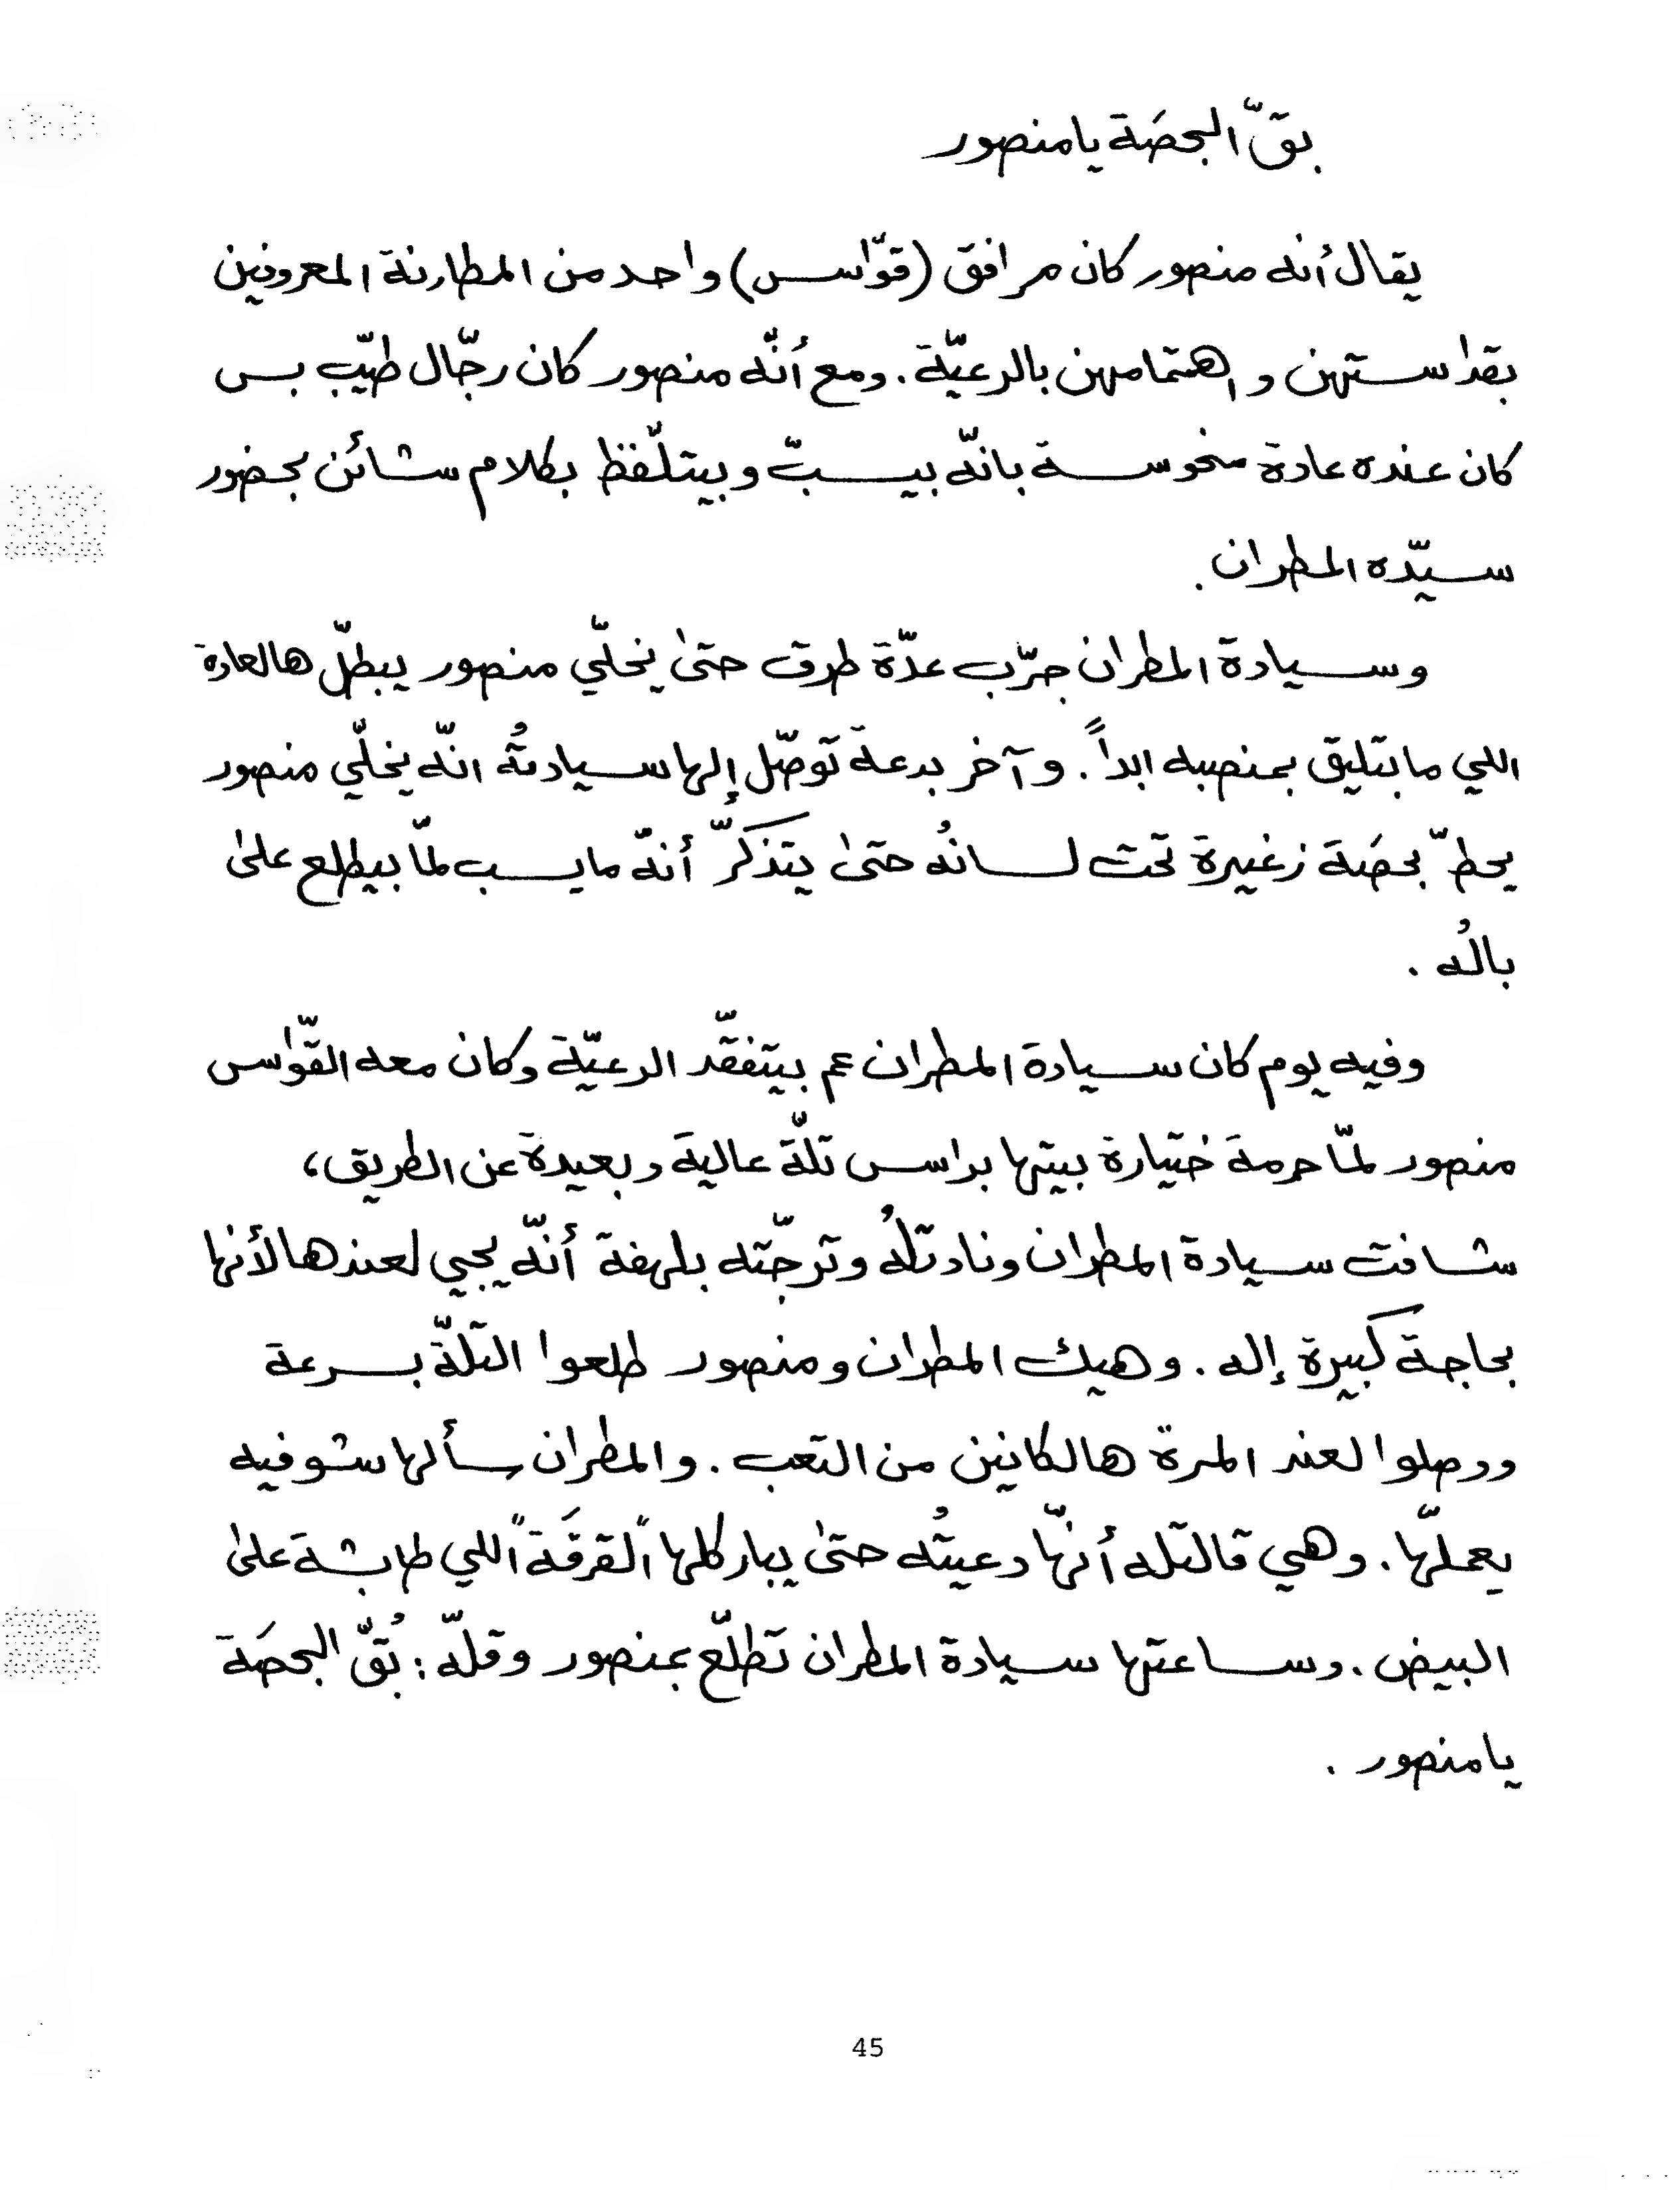 بقّ البحصَة يا منصور
يقال أنه منصور كان مرافق (قوّاس) واحد من المطارنة المعروفين
بقداستهن واهتمامهن بالرعيّة. ومع أنّه منصور كان رجّال طيّب بس
كان عنده عادة منحوسة بانّه بيسبّ وبيتلّفظ بكلام شائن بحضور
سيّده المطران.
وسيادة المطران جرّب عدّة طرق حتىٰ يخلّي منصور يبطلّ هالعادة
اللي ما بتليق بمنصبه ابداً. وآخر بدعة توصّل إلها سيادتُه انّه يخلّي منصور
يحطّ بحصَة زغيرة تحت لسانُه حتىٰ يتذكرّ أنّه ما يسب لمّا بيطلع علىٰ
بالُه.
وفيه يوم كان سيادة المطران عم بيتفقّد الرعيّة وكان معه القوّاس
منصور لمّا حرمة ختيارة بيتها براس تلّة عالية وبعيدة عن الطريق،
شافت سيادة المطران ونادتلُه وترجّته بلهفة أنّه يجي لعندها لأنها
بحاجة كبيرة إله. وهيك المطران ومنصور طلعوا التلّة بسرعة
ووصلوا لعند المرة هالكانين من التعب. والمطران سألها شو فيه
يعملّها. وهي قالتله أنّها دعيتُه حتىٰ يباركلها "القرقَة" اللي طابشة علىٰ
البيض. وساعتها سيادة المطران تطلّع بمنصور وقلّه: بُقّ البحصَة
يا منصور.
45